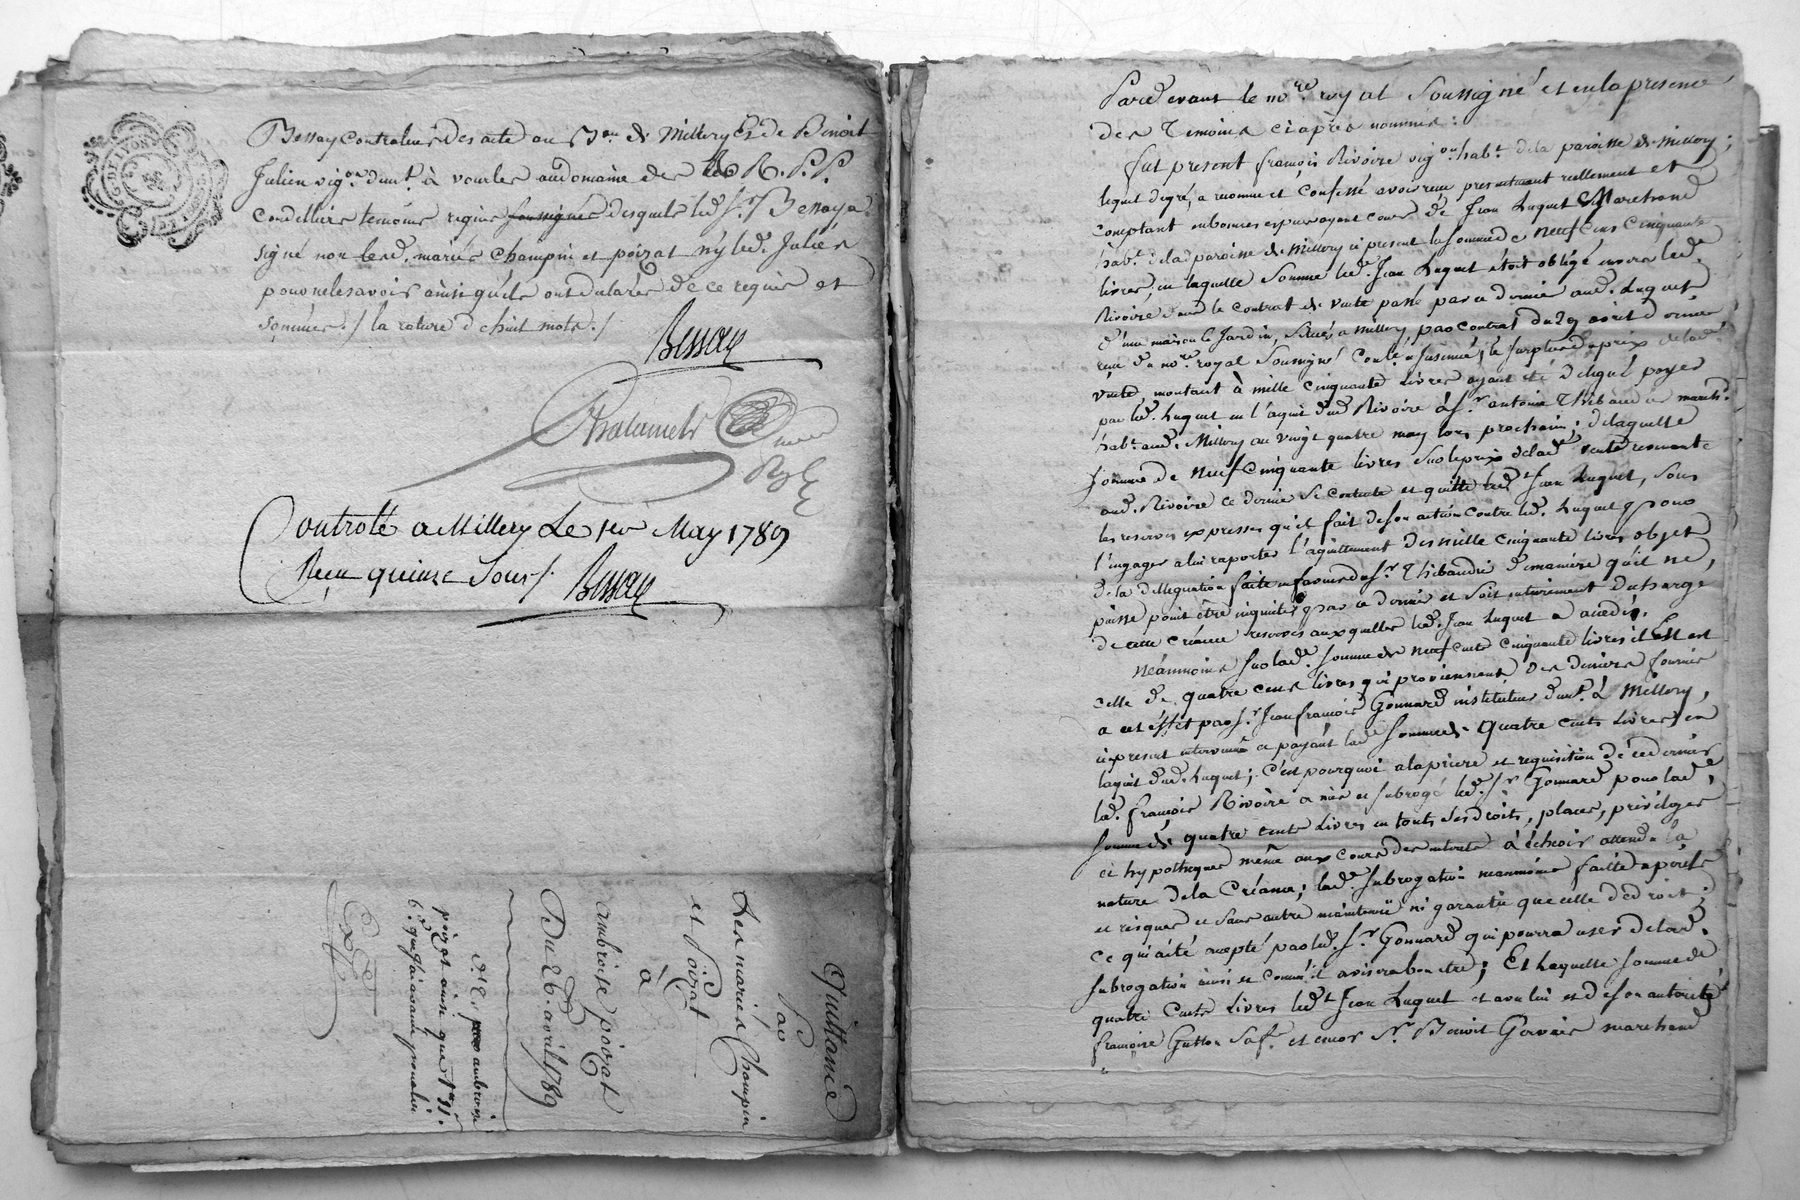 G. DE LYON
Bessay controleur des acte au B.au de Millery Et de Benoit
Julien vig.on dem.t à vourles audomaine des R. P. P.
Cordelliers temoins requis soussignés desquels led. s.r Bessay a
signé non led. mariés Champin et poizat ny led. Julien
pour ne le savoir ainsi qu'ils ont déclarés de ce requis et
sommés./ la rature de huit mots./
Bessay
Controlé a Millery Le 1er May 1789
Reçu quinze Sous/. Bessay
Quittance
par
Les mariés Champin
et Poizat
à
ambroise poizat
Du 26 avril 1789
Exp.é
Pardevant le no.re royal Soussigné et en la presence
des Temoins ciaprès nommés :
fut present françois Rivoire vig.on hab.t de la paroisse de millery ;
lequel de gré, a reconnu et Confessé avoir reçu presentement réellement et
comptant en bonnes especes ayant cours de Jean Luquet Marchand
hab.t de lad. paroisse de Millery ci present la somme de neuf cens cinquante
livres, en laquelle somme led. Jean Luquet étoit obligé envers led.
Rivoire dans le contrat de vente passé par ce dernier aud. Luquet
d'une maison & Jardin, Situés a Millery, par contrat du 29 avril dernier
reçu du no.re royal Soussigné Conlé a Susenné ; le surplus du prix de lad.
vente, montant à mille cinquante Livres ayant été délégué payer
par led. Luquet en l'aquit dud. Rivoire à s.r antoine Thibaudier march.d
hab.t aud. Millery au vingt quatre may lors prochain ; de laquelle
somme de neuf cinquante livres sur le prix de lad. vente revenante
aud. Rivoire ce dernier se contente et quitte led. Jean Luquet, sous
les reserves expresses qu'il fait de son action contre led. Luquet pour
l'engager a lui raporter l'aquittement des mille cinquante livres objet
de la dellegation faite en faveur du s.r Thibaudier de maniere qu'il ne,
puisse point être inquieté par ce dernier et soit entierement decharge
de cette créance reserves auxquelles led. Jean Luquet a accedé.
Neanmoins sur lad. somme de neuf cents cinquante livres il Est est
celle de quatre cens livres qui proviennent des deniers fournis
a cet éffet par s.r Jean françois Gonnard instituteur dem.t à Millery,
ici present intervenu et payant lad. somme de quatre cents Livres en
laquit dud. Luquet ; C'est pourquoi a la priere et requisition de ce dernier
led. françois Rivoire a mis et subrogé led. s.r Gonnard pour lad.
somme de quatre cents Livres en touts ses droits, places, privileges
et hypotheques même aux cours des interets à échoir attendu la
nature de la Créance ; lad. subrogation neanmoins faite aperils
et risques et sans autre maintenüe ni garantie que celle de droit ;
ce qui a été accepté par led. s.r Gonnard qui pourra user de lad.
subrogation ainsi et comm'il avisera bon etre ; Et laquelle somme de
quatre Cents Livres led.t Jean Luquet et avec lui et de son autorité
françoise Guillon Sa f.e et encor S.r Benoit Gervais marchand